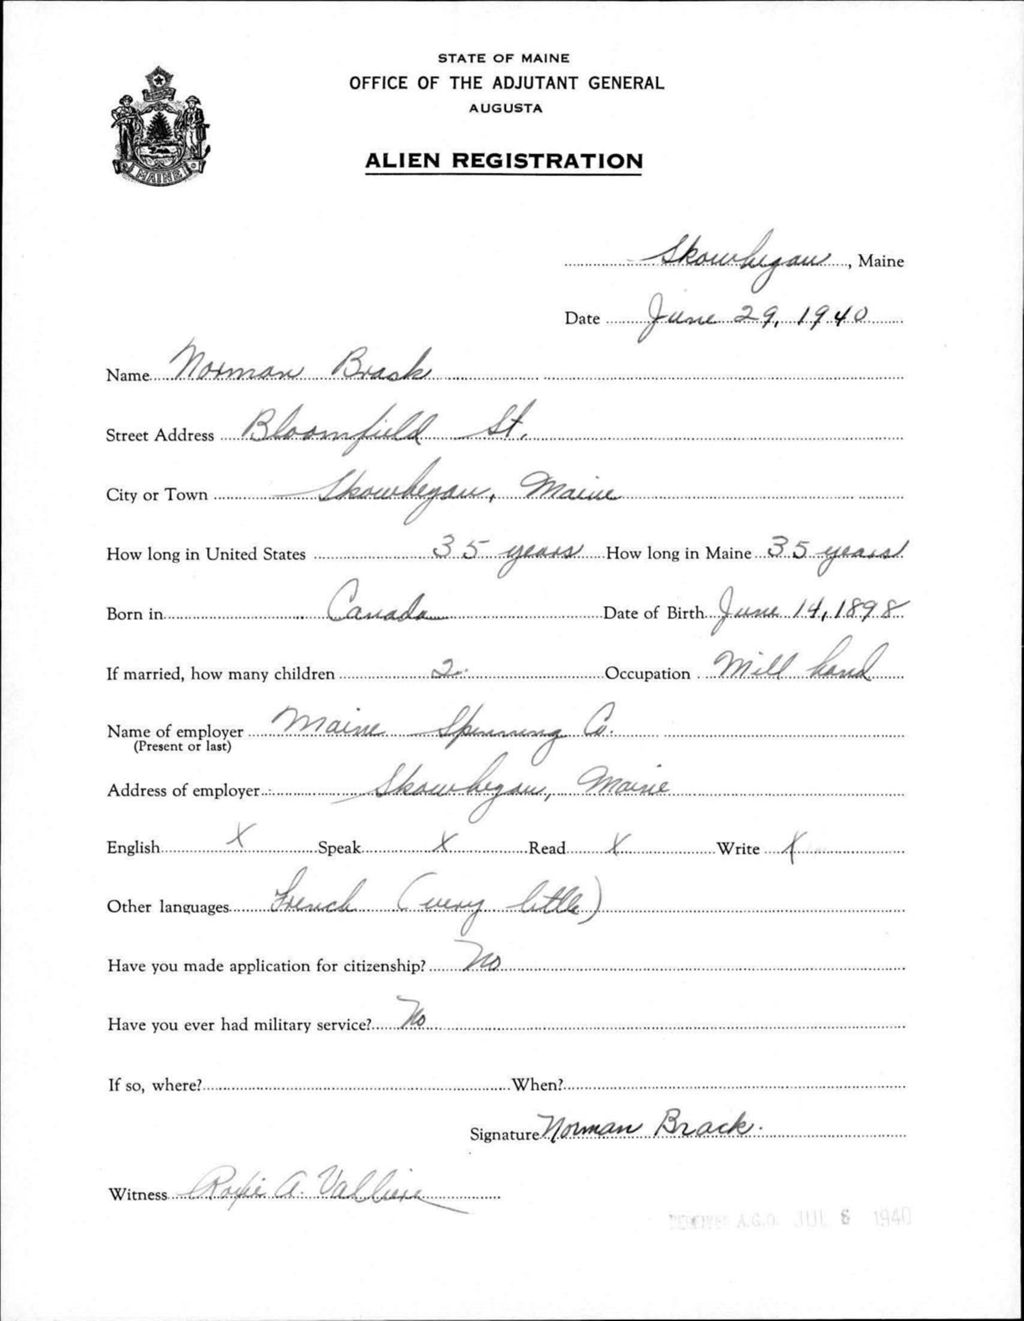 STATE OF MAINE
OFFICE OF THE ADJUTANT GENERAL
AUGUSTA
ALIEN REGISTRATION
MAINE
Skowhegan, Maine
Date June 29, 1940
Name Norman Brack
Street Address Bloomfield St.
City or Town Skowhegan, Maine
How long in United States 35 years How long in Maine 35 years
Born in Canada Date of Birth June 14, 1898
If married, how many children 2 Occupation Mill hand
Name of employer Maine Spinning Co.
(Present or last)
Address of employer Skowhegan, Maine
English X Speak X Read X Write X
Other languages French (very little)
Have you made application for citizenship? No
Have you ever had military service? No
If so, where? When?
Signature Norman Brack.
Witness A. Valliere
A.G.O. JUL 8 1940